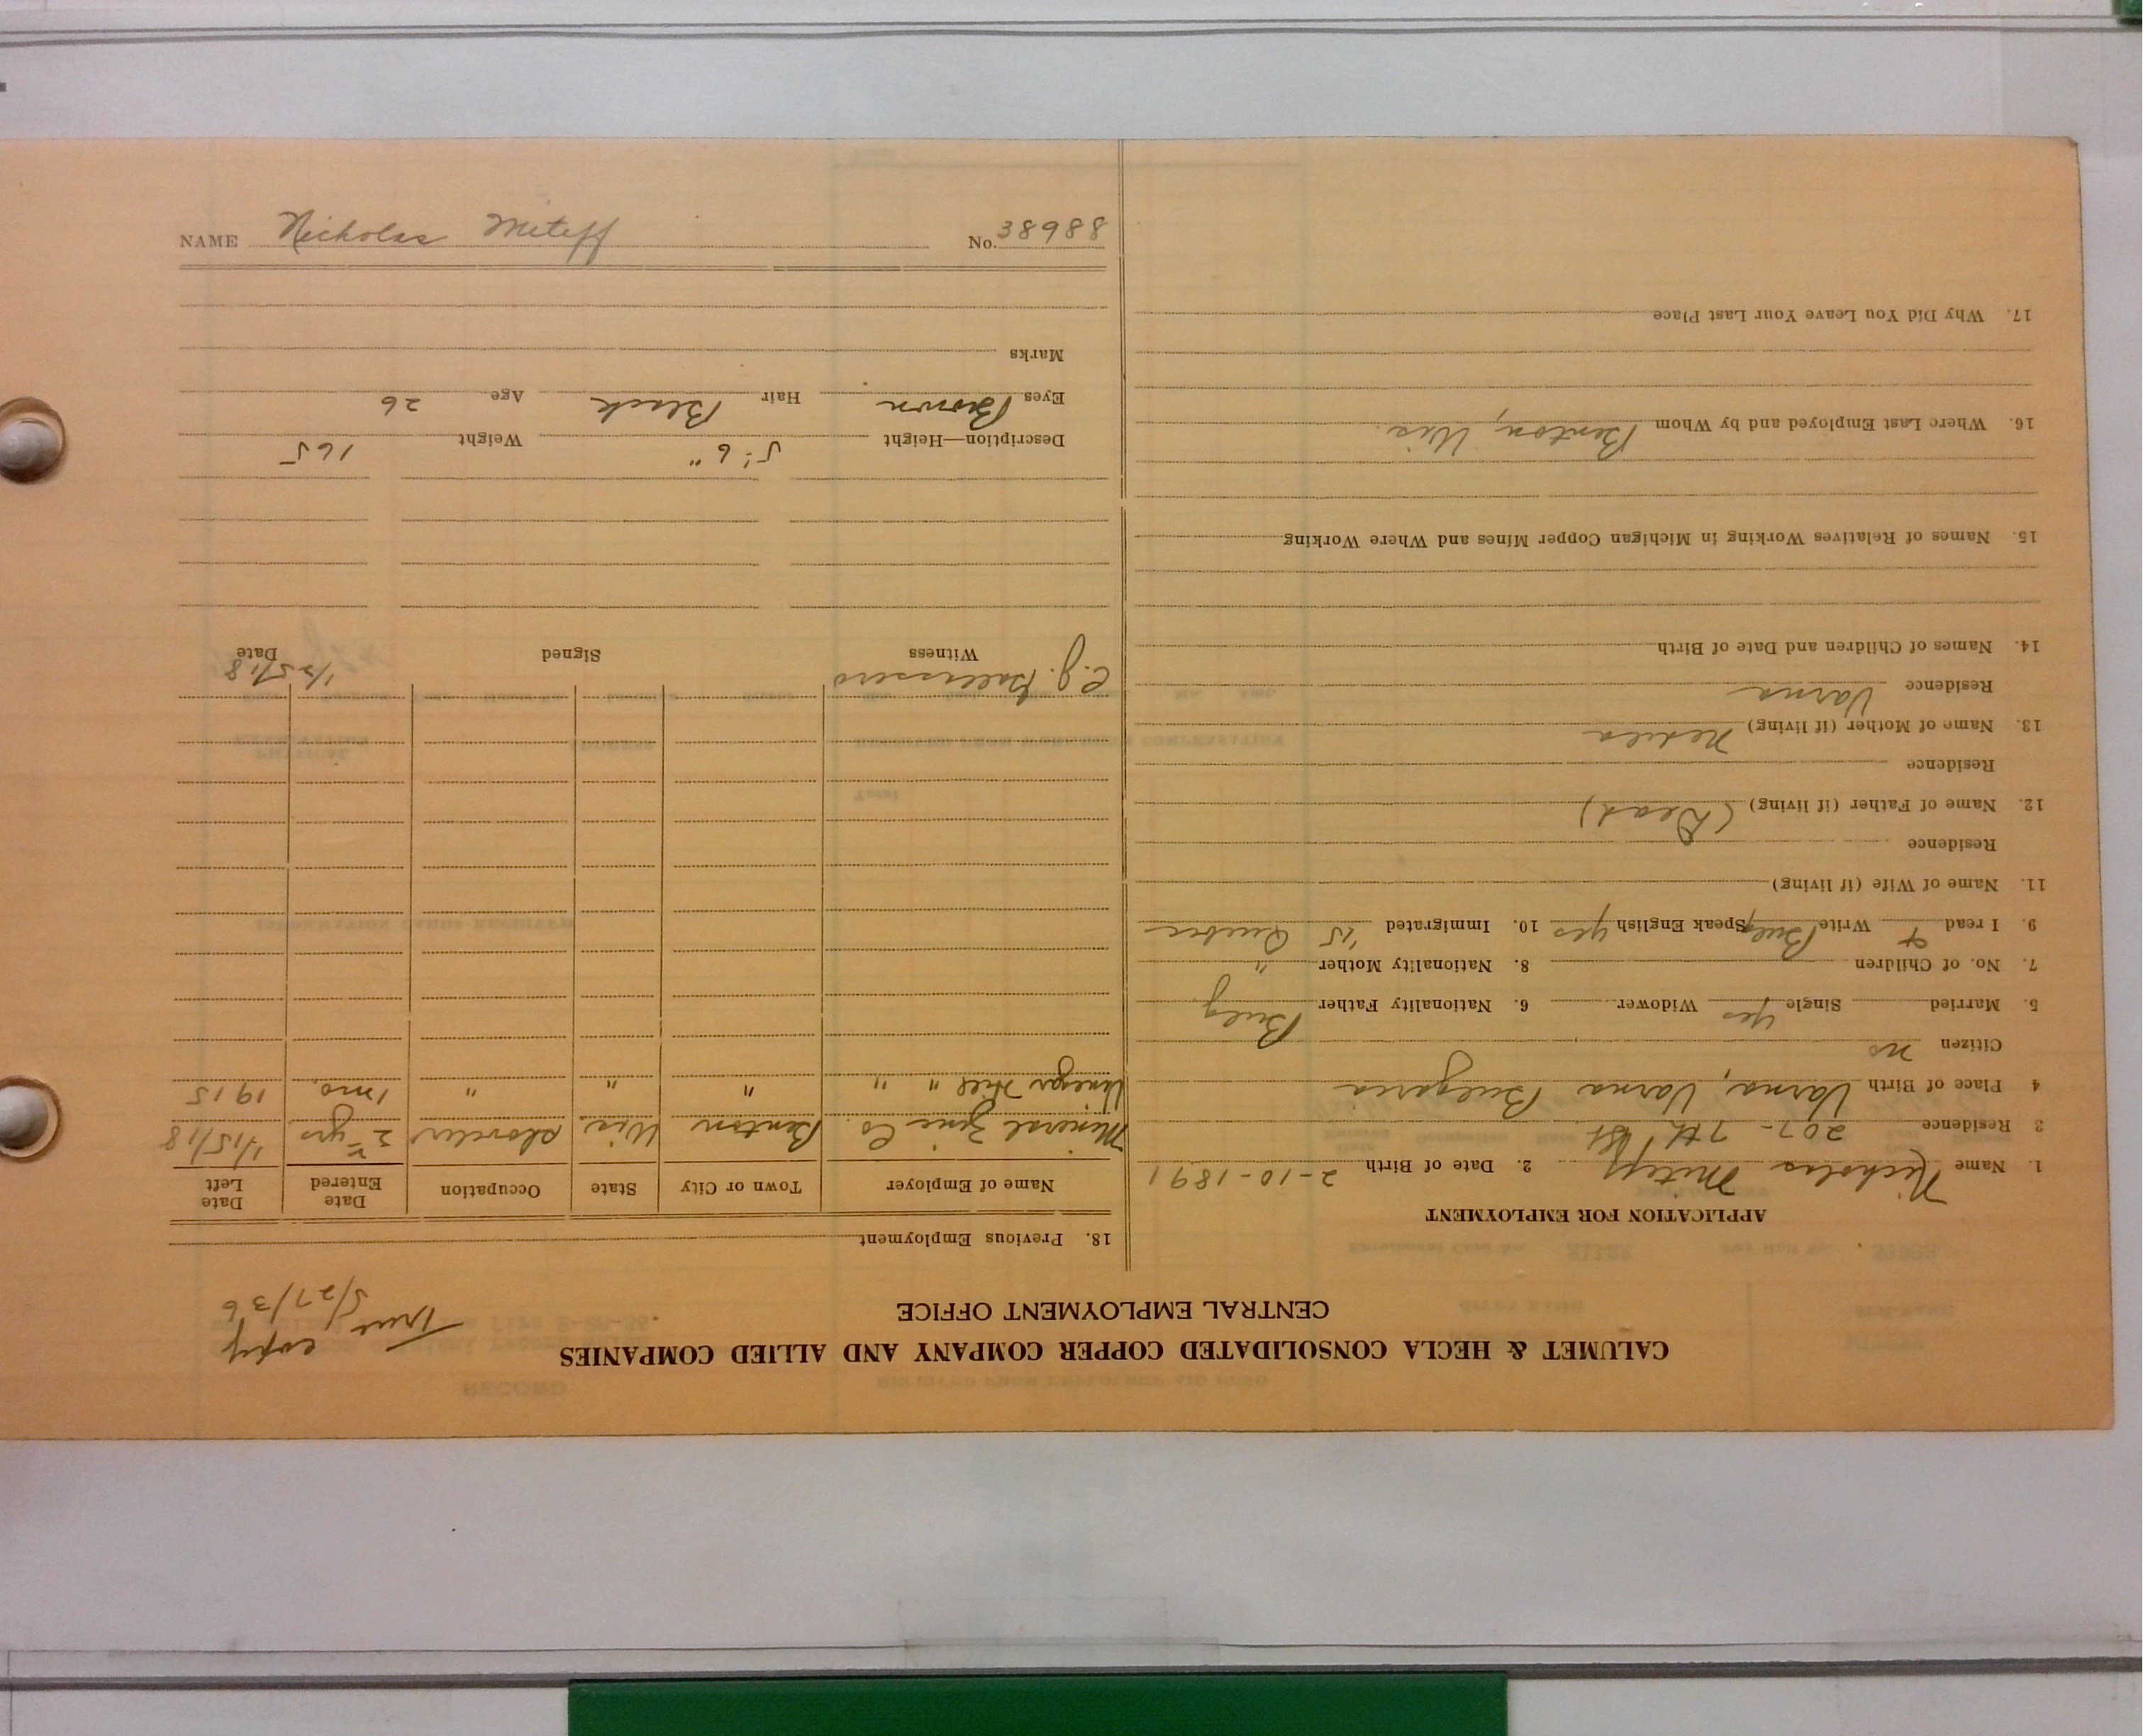 CALUMET & HECLA CONSOLIDATED COPPER COMPANY AND ALLIED COMPANIES
CENTRAL EMPLOYMENT OFFICE
True copy
5/27/36
APPLICATION FOR EMPLOYMENT
1. Name Nicholas Miteff 2. Date of Birth 2-10-1891
3 Residence 207- 7th St
4 Place of Birth Varna, Varna Bulgaria
Citizen no
5. Married Single yes Widower 6. Nationality Father Bulg
7. No. of Children 8. Nationality Mother "
9. I read & Write Bulg Speak English yes 10. Immigrated '15 Quebec
11. Name of Wife (if living)
Residence
12. Name of Father (if living) (Dead)
Residence
13. Name of Mother (if living)
Residence Varna
14. Names of Children and Date of Birth
15. Names of Relatives Working in Michigan Copper Mines and Where Working
16. Where Last Employed and by Whom Benton, Wis.
17. Why Did You Leave Your Last Place
18. Previous Employment
Name of Employer Town or City State Occupation Date Entered Date Left
Mineral Zinc Co. Benton Wis shoveler 2 yrs 1/15/18
Vinegar Hill " " " " " 1 mo. 1915
C.J. 1/25/18
Witness Signed Date
Description—Height 5' 6" Weight 165
Eyes Brown Hair Black Age 26
Marks
NAME Nicholas Miteff No. 38688